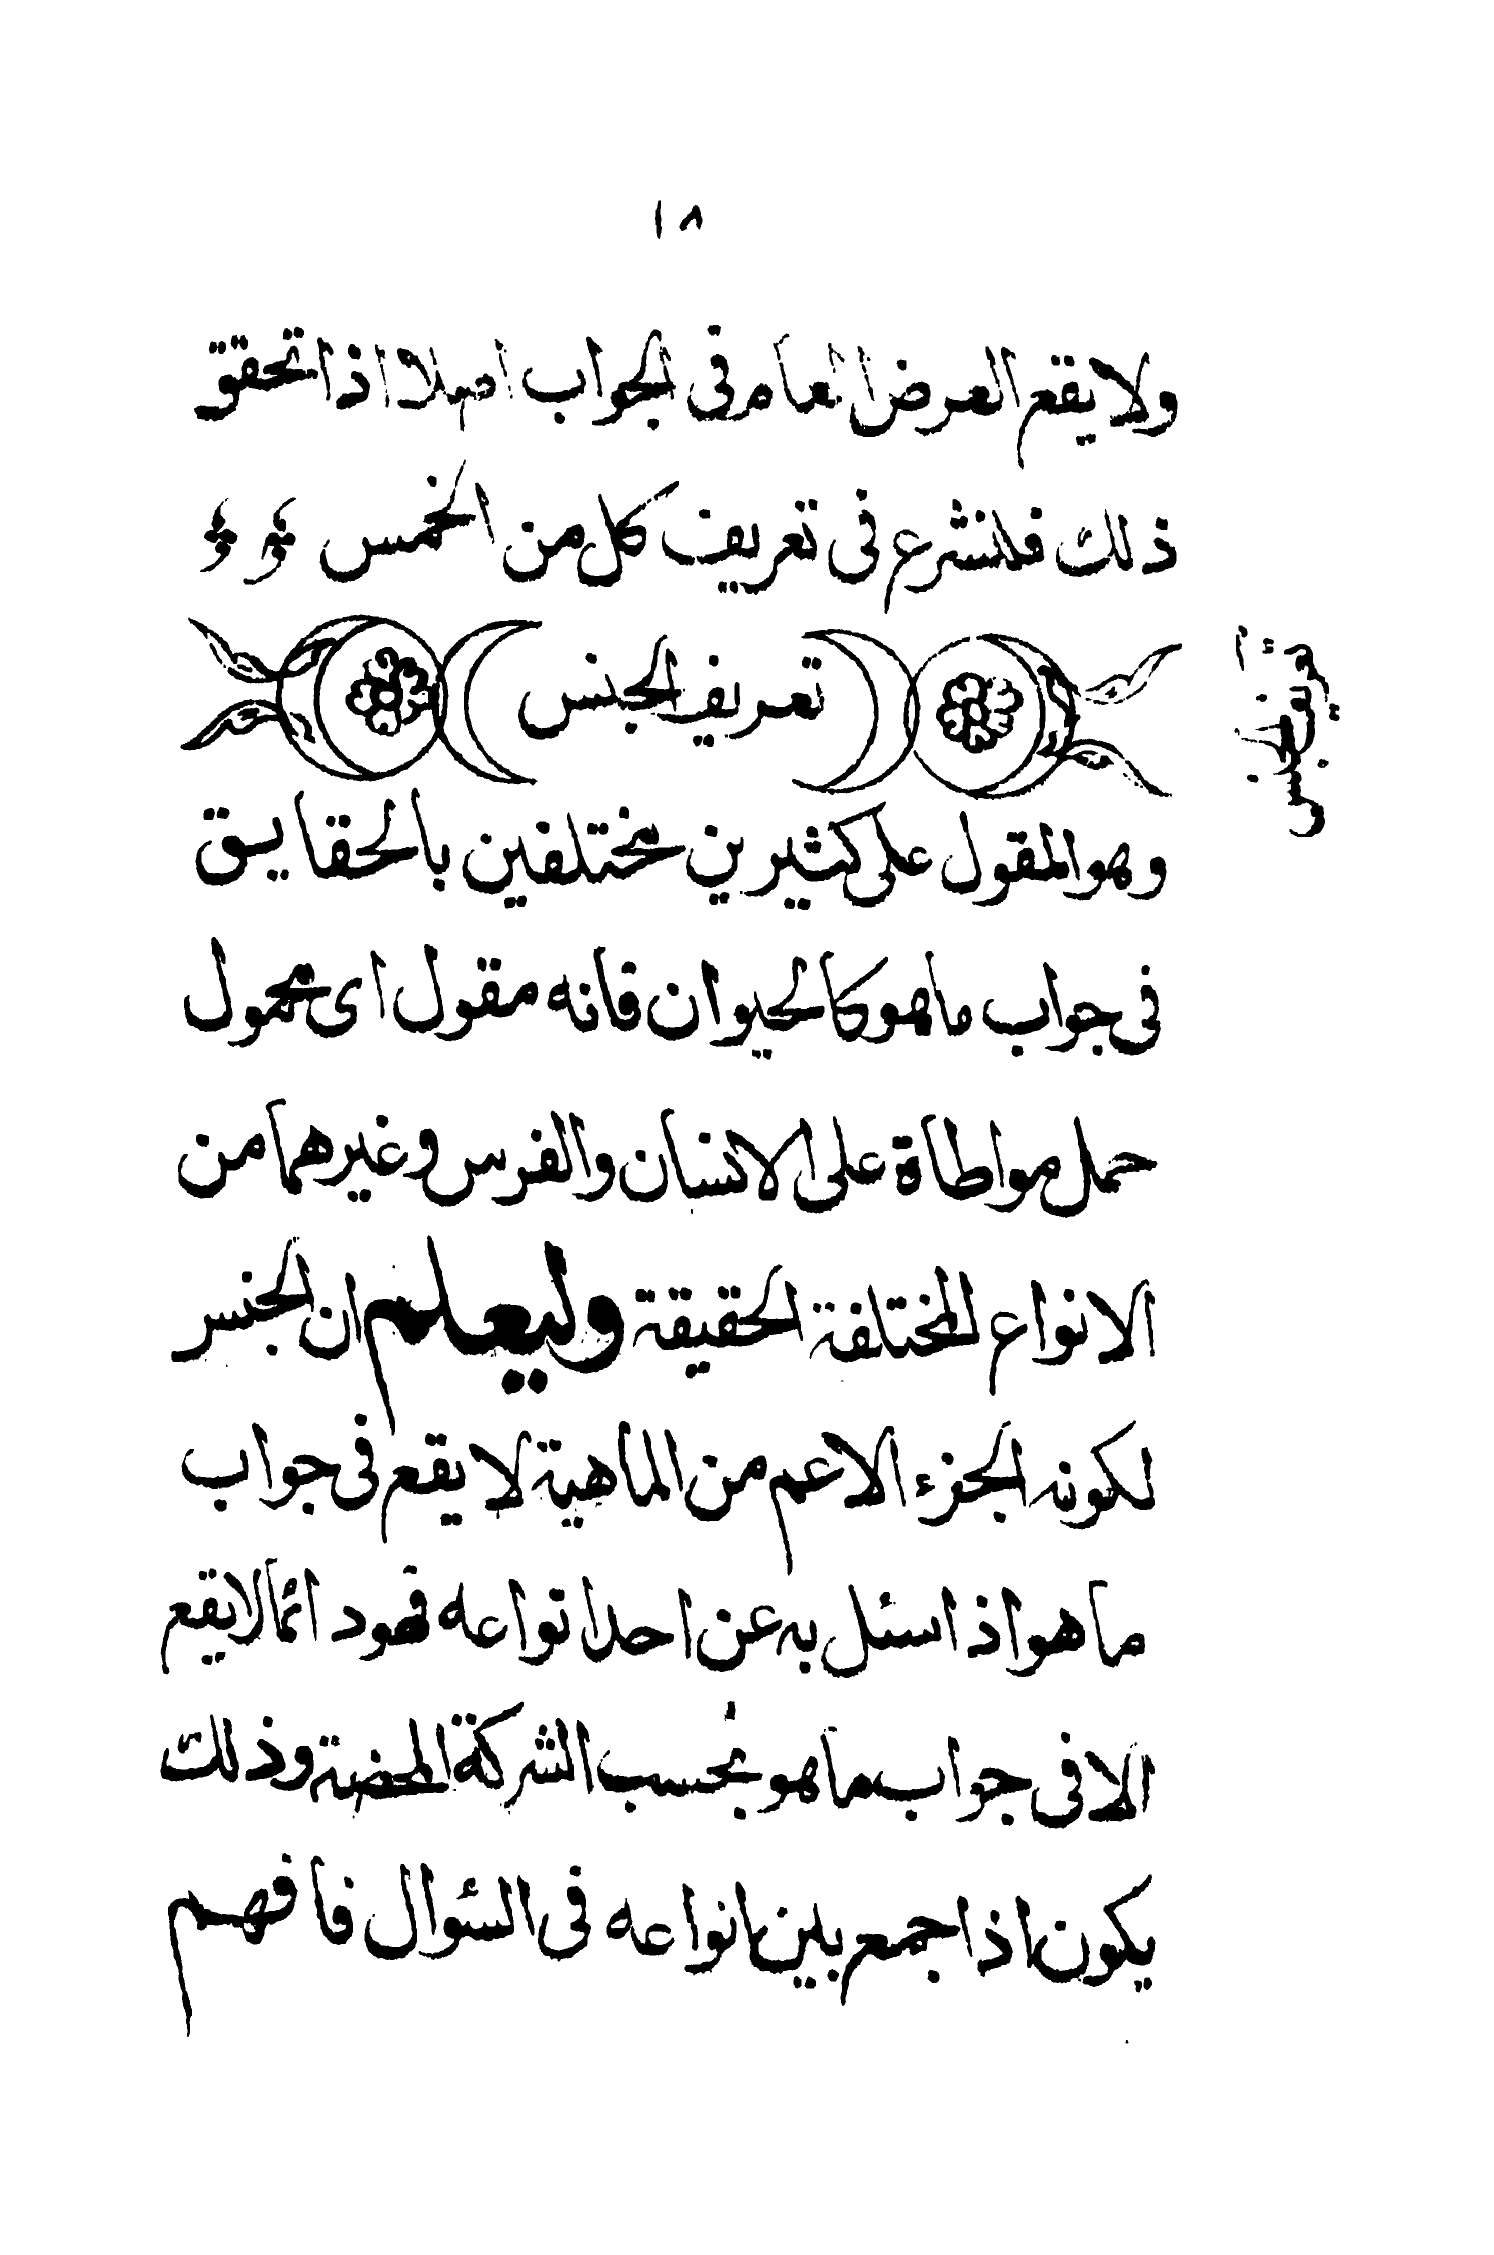 ١٨
ولا يقع العرض العام في الجواب اصلا اذا تحقق
ذلك فلنشرع في تعريف كل من الخمس
تعريف الجنس
تعريف الجنس
وهو المقول على كثيرين مختلفين بالحقايق
في جواب ما هو كالحيوان فانه مقول اى محمول
حمل مواطاة على الانسان والفرس وغيرهما من
الانواع المختلفة الحقيقة وليعلم ان الجنس
لكونه الجزء الاعم من الماهية لا يقع في جواب
ما هو اذا سئل به عن احد انواعه فهو دائما لا يقع
الا في جواب ما هو بحسب الشركة المحضة وذلك
يكون اذا جمع بين انواعه في السئوال فافهم